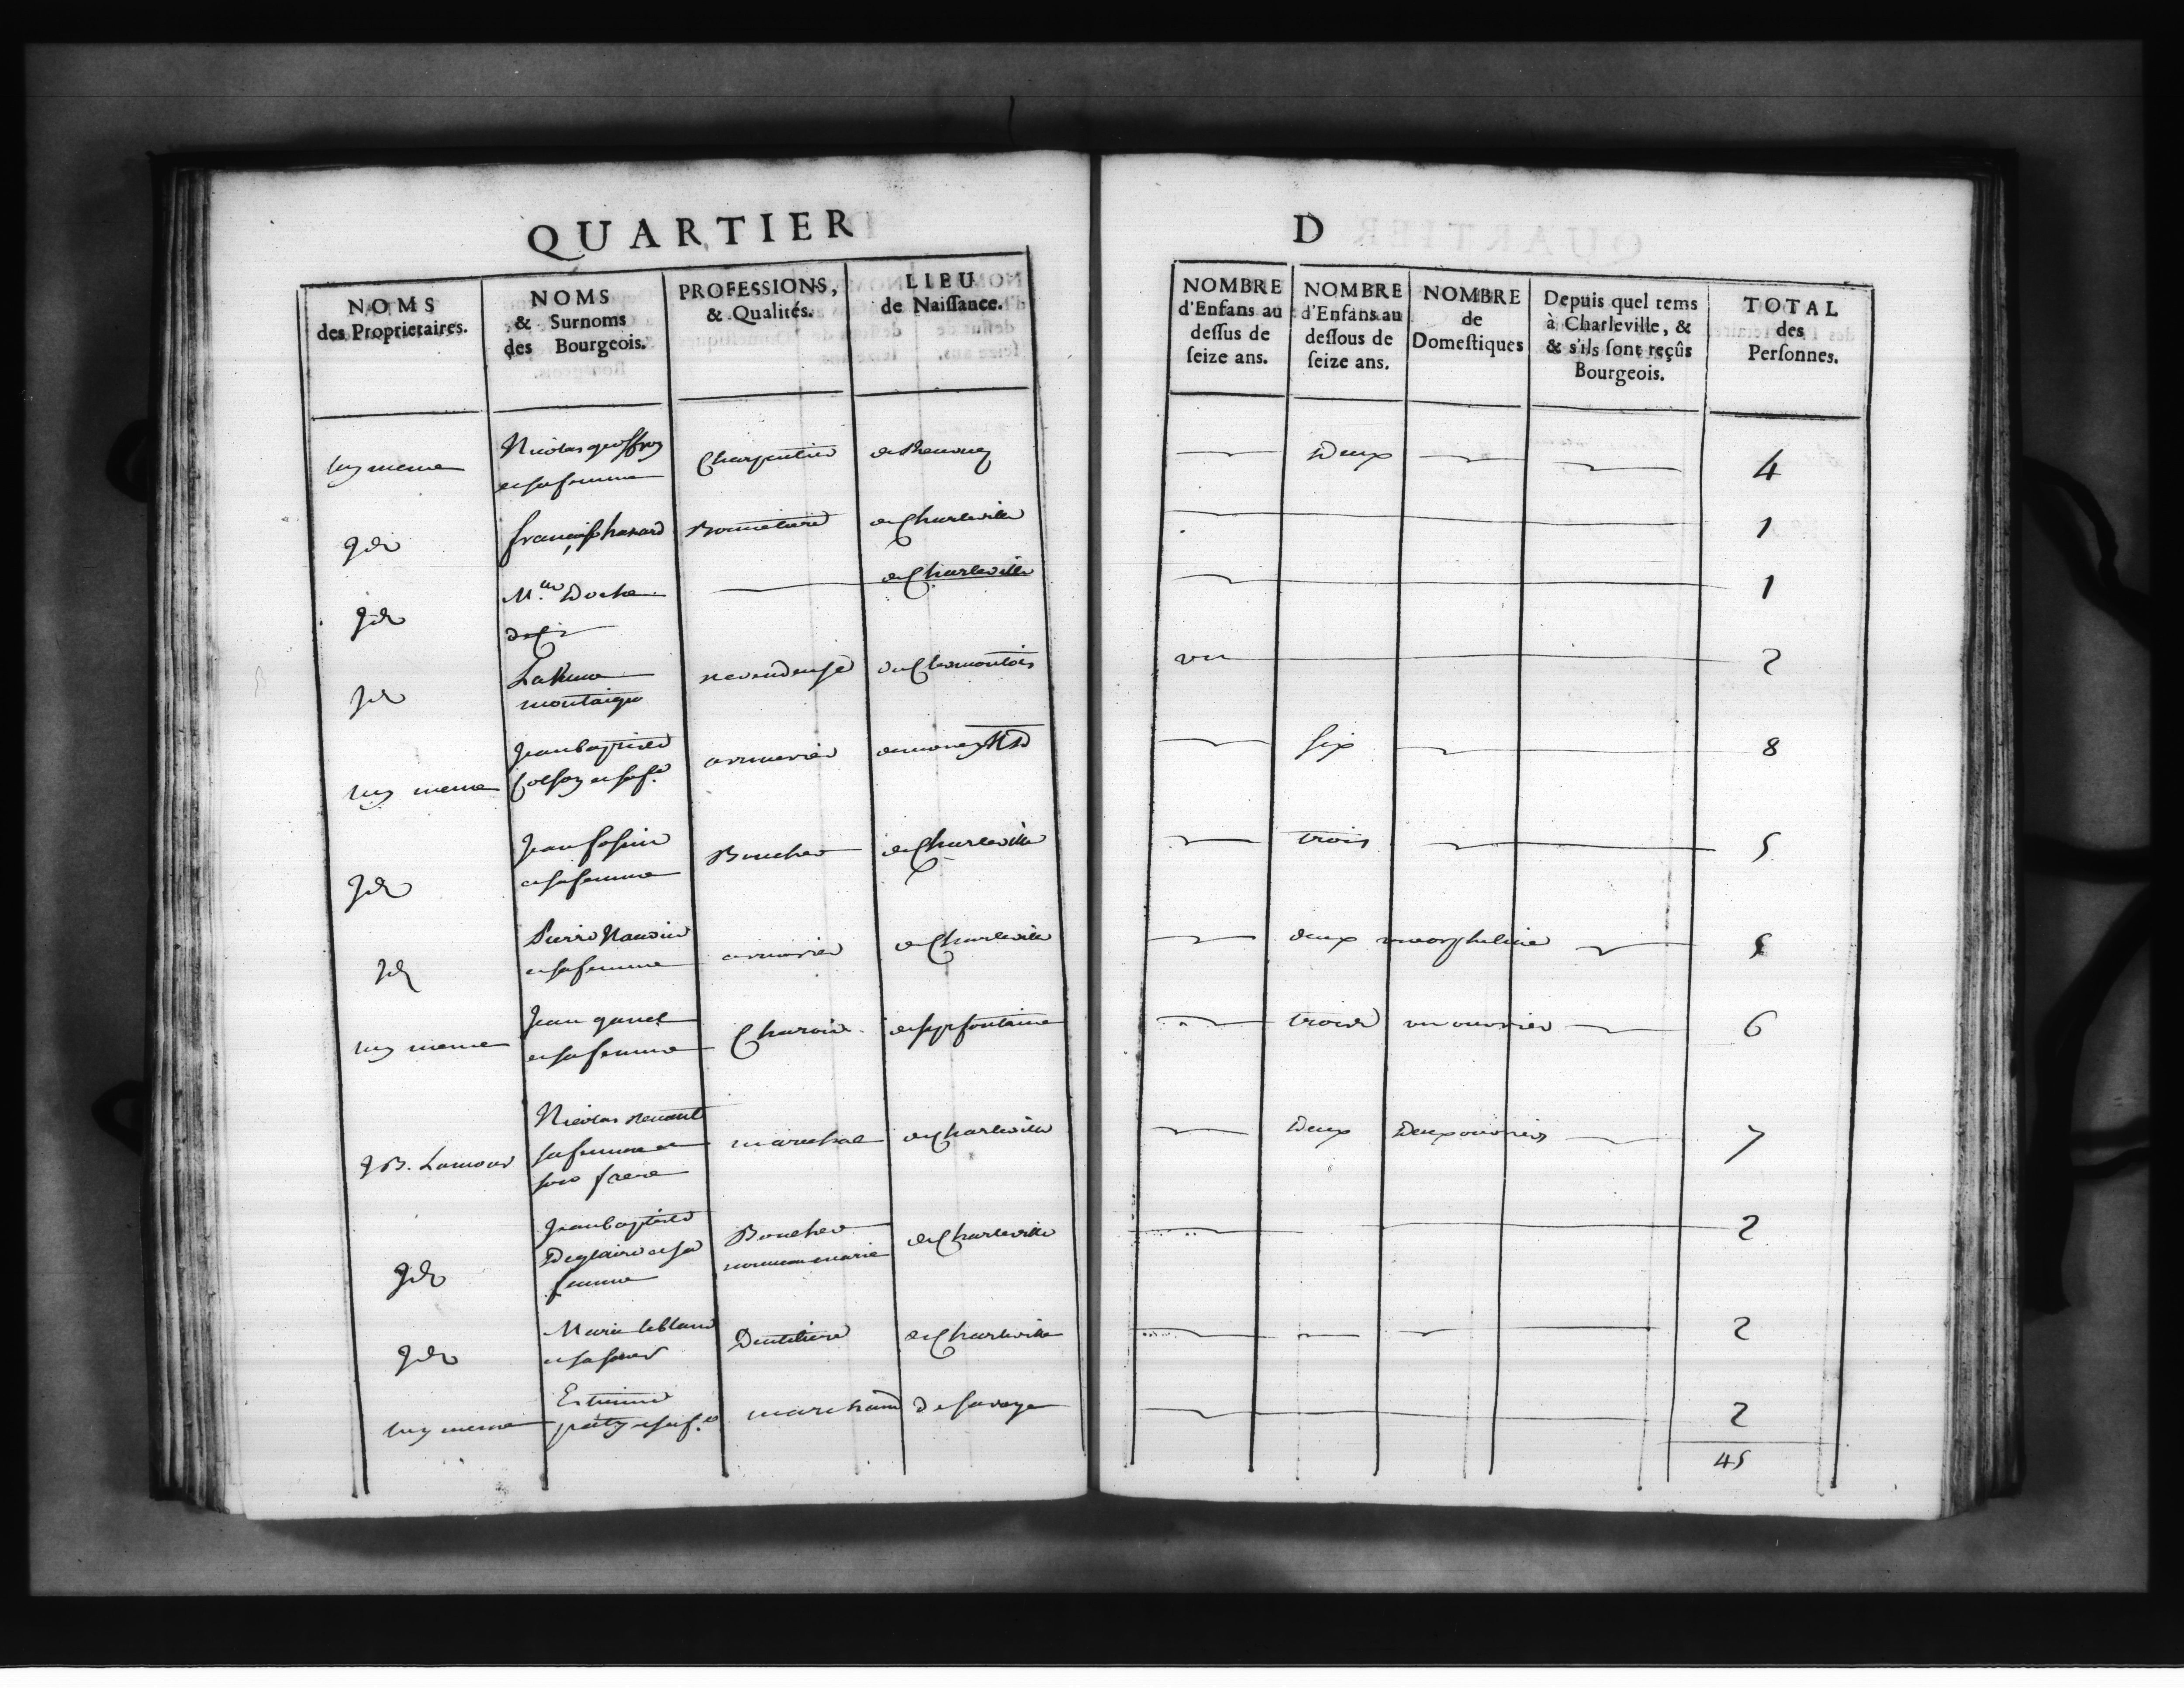 QUARTIER D
NOMS des Proprietaires.
NOMS & Surnoms des Bourgeois.
PROFESSIONS, & Qualités.
LIEU de Naiſſance.
NOMBRE d'Enfans au deſſus de ſeize ans.
NOMBRE d'Enfans au deſſous de ſeize ans.
NOMBRE de Domeſtiques
Depuis quel tems à Charleville, & & s'ils ſont reçûs Bourgeois.
TOTAL des Perſonnes.
luy meme Nicolas geoffroy Charpentier Deux 4
et sa femme
Id francoise hanard de Charleville 1
Id M.lle Doche de Charleville 1
Id La Veuve revendeuse un 2
montaigu
luy meme Jean baptiste armurier six 8
Colson et sa f.e
Id Jean Boucher de Charleville trois 5
et sa femme
Id Pierre armurier de Charleville deux une orpheline 5
et sa femme
luy meme Jean Charon de sept fontaine trois un ouvrier 6
et sa femme
J B. Lamour Nicolas marechal de Charleville Deux Deux ouvriers 7
sa femme et
son frere
Id Jean baptiste Boucher de Charleville 2
Deglaire et sa nouveau marié
femme
Id Marie leblanc Denteliere de Charleville 2
et sa soeur
luy meme Estienne marchand de savoye 2
pety et sa f.e
45